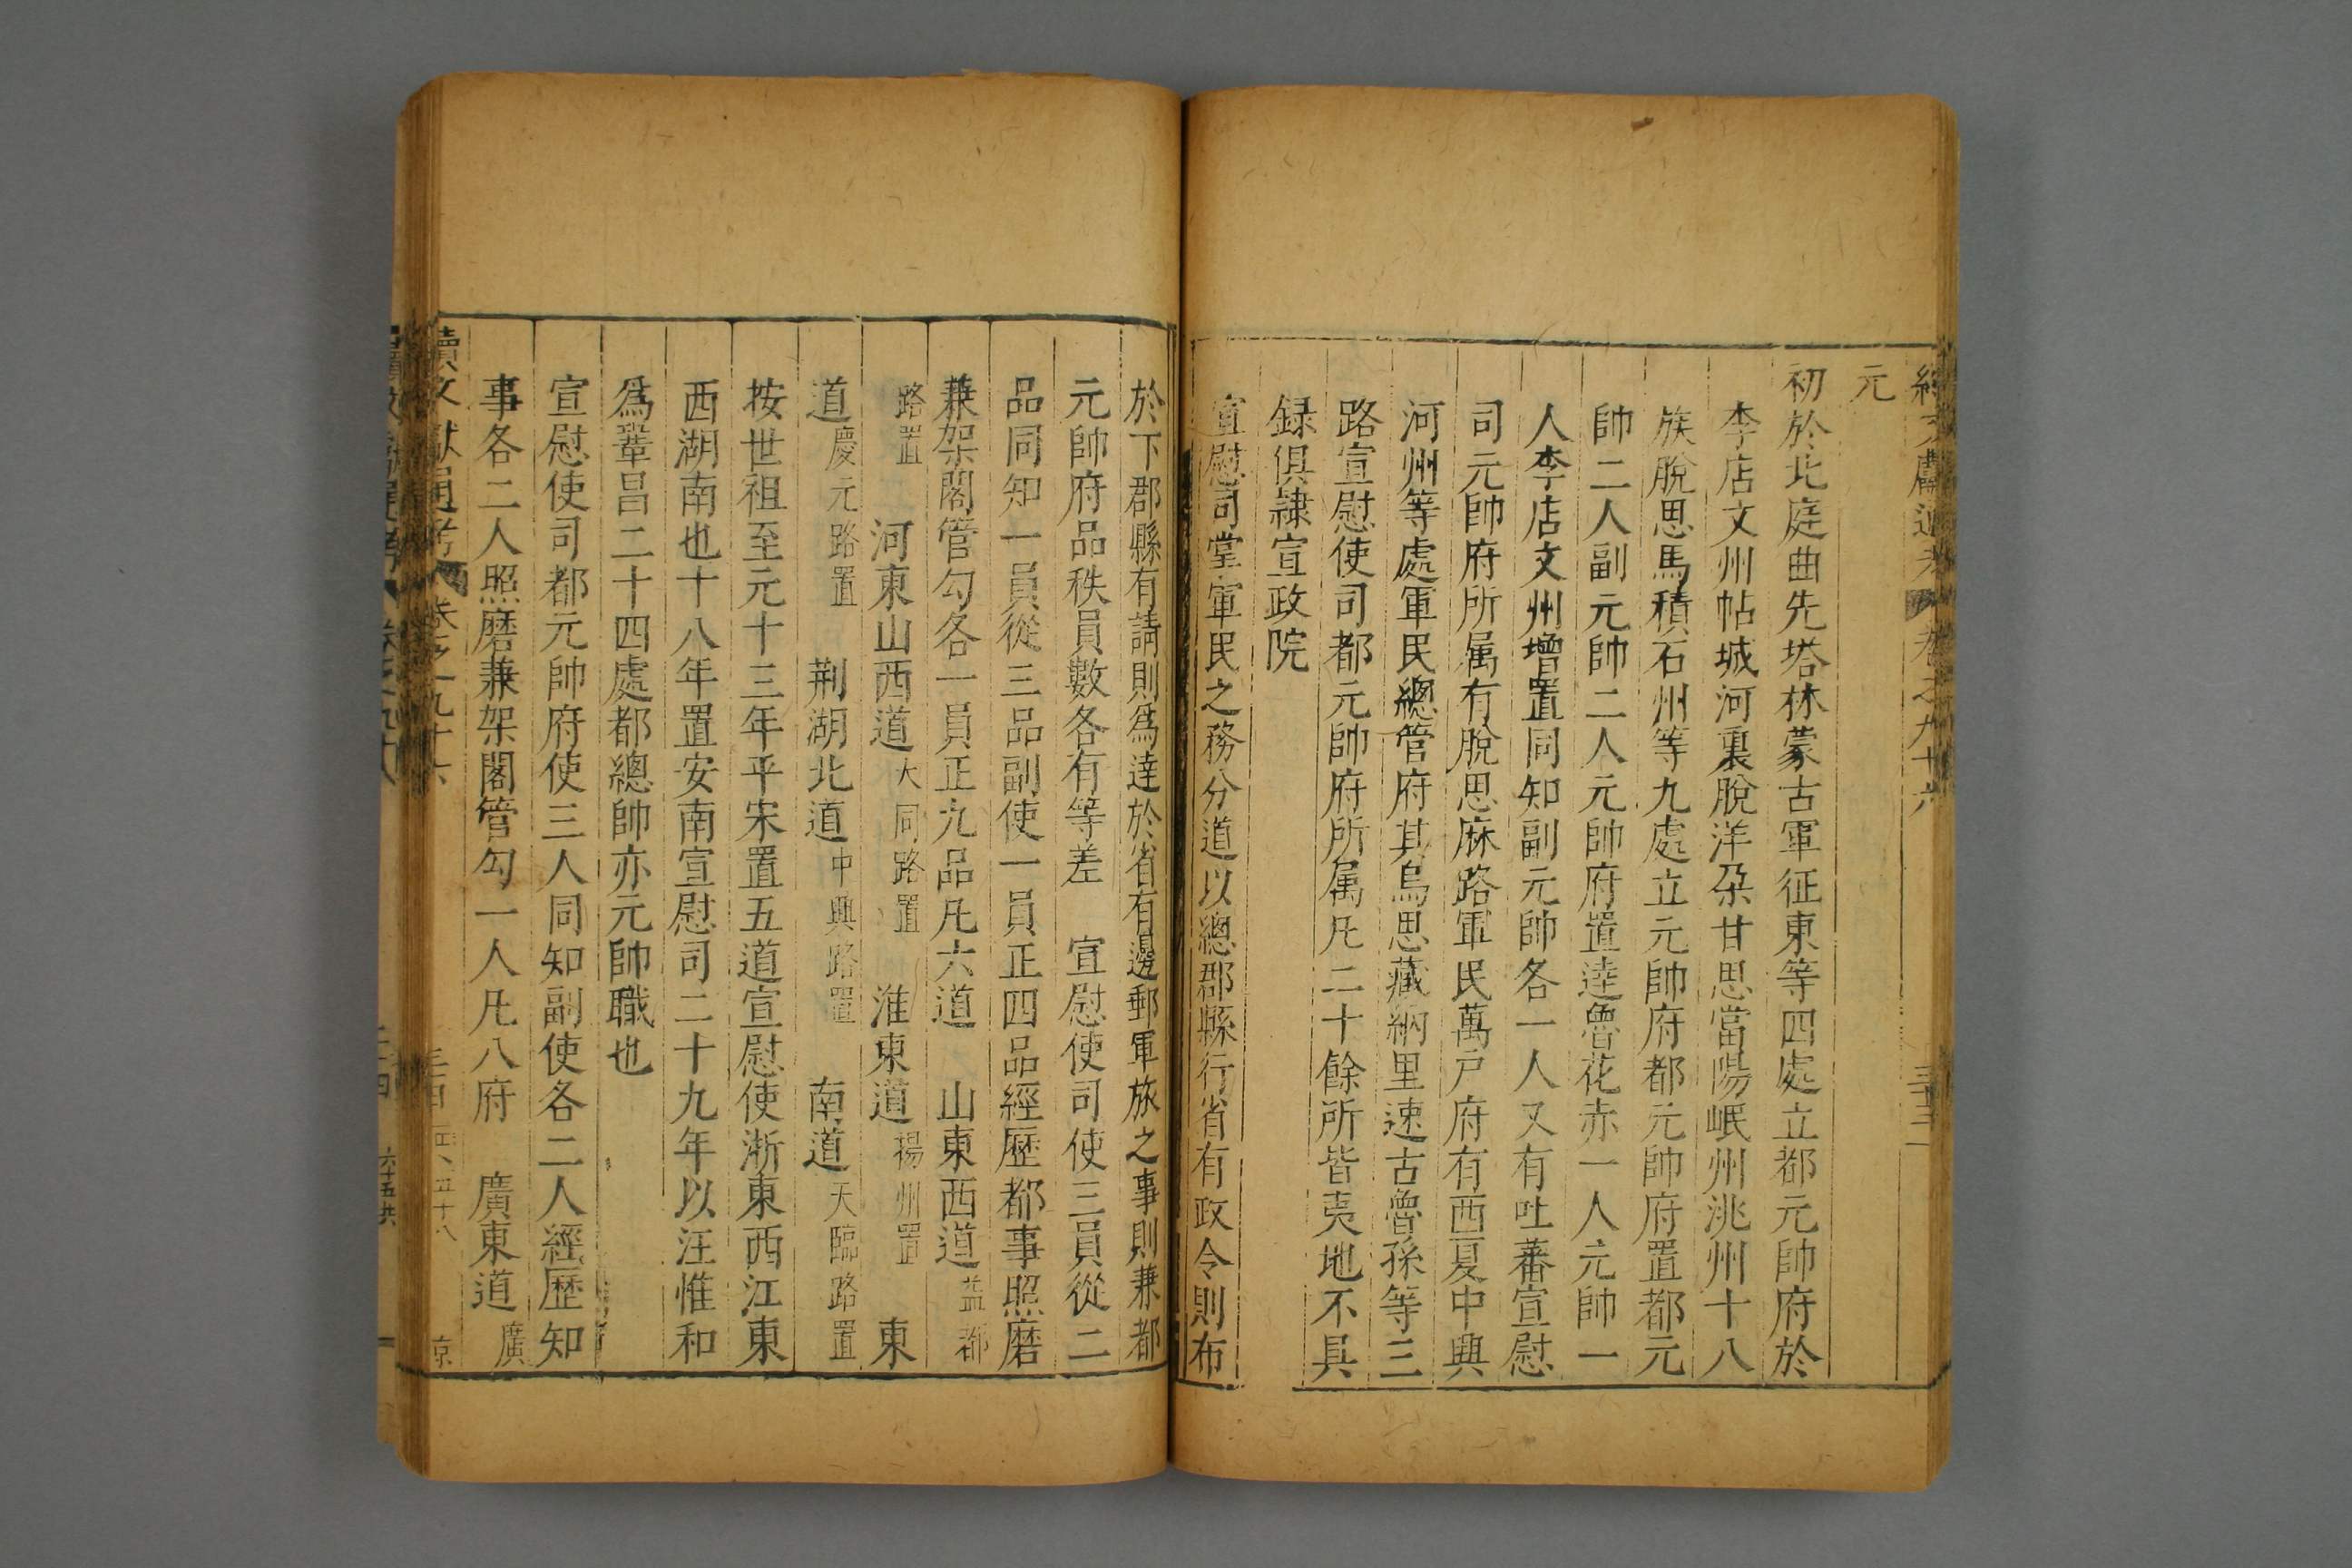 續文獻通考 卷之九十六 三十三
元
初於北庭曲先塔林蒙古軍征東等四處立都元帥府於
李店文州帖城河裏脫洋朶甘思當陽岷州洮州十八
族脫思馬積石州等九處立元帥府都元帥府置都元
帥二人副元帥二人元帥府置逹魯花赤一人元帥一
人李店文州增置同知副元帥各一人又有吐蕃宣慰
司元帥府所属有脫思麻路軍民萬户府有西夏中興
河州等處軍民總管府其烏思藏納里速古魯孫等三
路宣慰使司都元帥府所属凡二十餘所皆夷地不具
録俱隷宣政院
宣慰司掌軍民之務分道以總郡縣行省有政令則布
於下郡縣有請則爲逹於省有邊郵軍旅之事則兼都
元帥府品秩員數各有等差 宣慰使司使三員從二
品同知一員從三品副使一員正四品經歷都事照磨
兼架閣管勾各一員正九品凡六道 山東西道益都
路置 河東山西道大同路置 淮東道揚州置 東
道慶元路置 荆湖北道中興路置 南道天臨路置
按世祖至元十三年平宋置五道宣慰使浙東西江東
西湖南也十八年置安南宣慰司二十九年以汪惟和
爲鞏昌二十四處都總帥亦元帥職也
宣慰使司都元帥府使三人同知副使各二人經歷知
事各二人照磨兼架閣管勾一人凡八府 廣東道廣
續文獻通考 卷之九十六 三十四